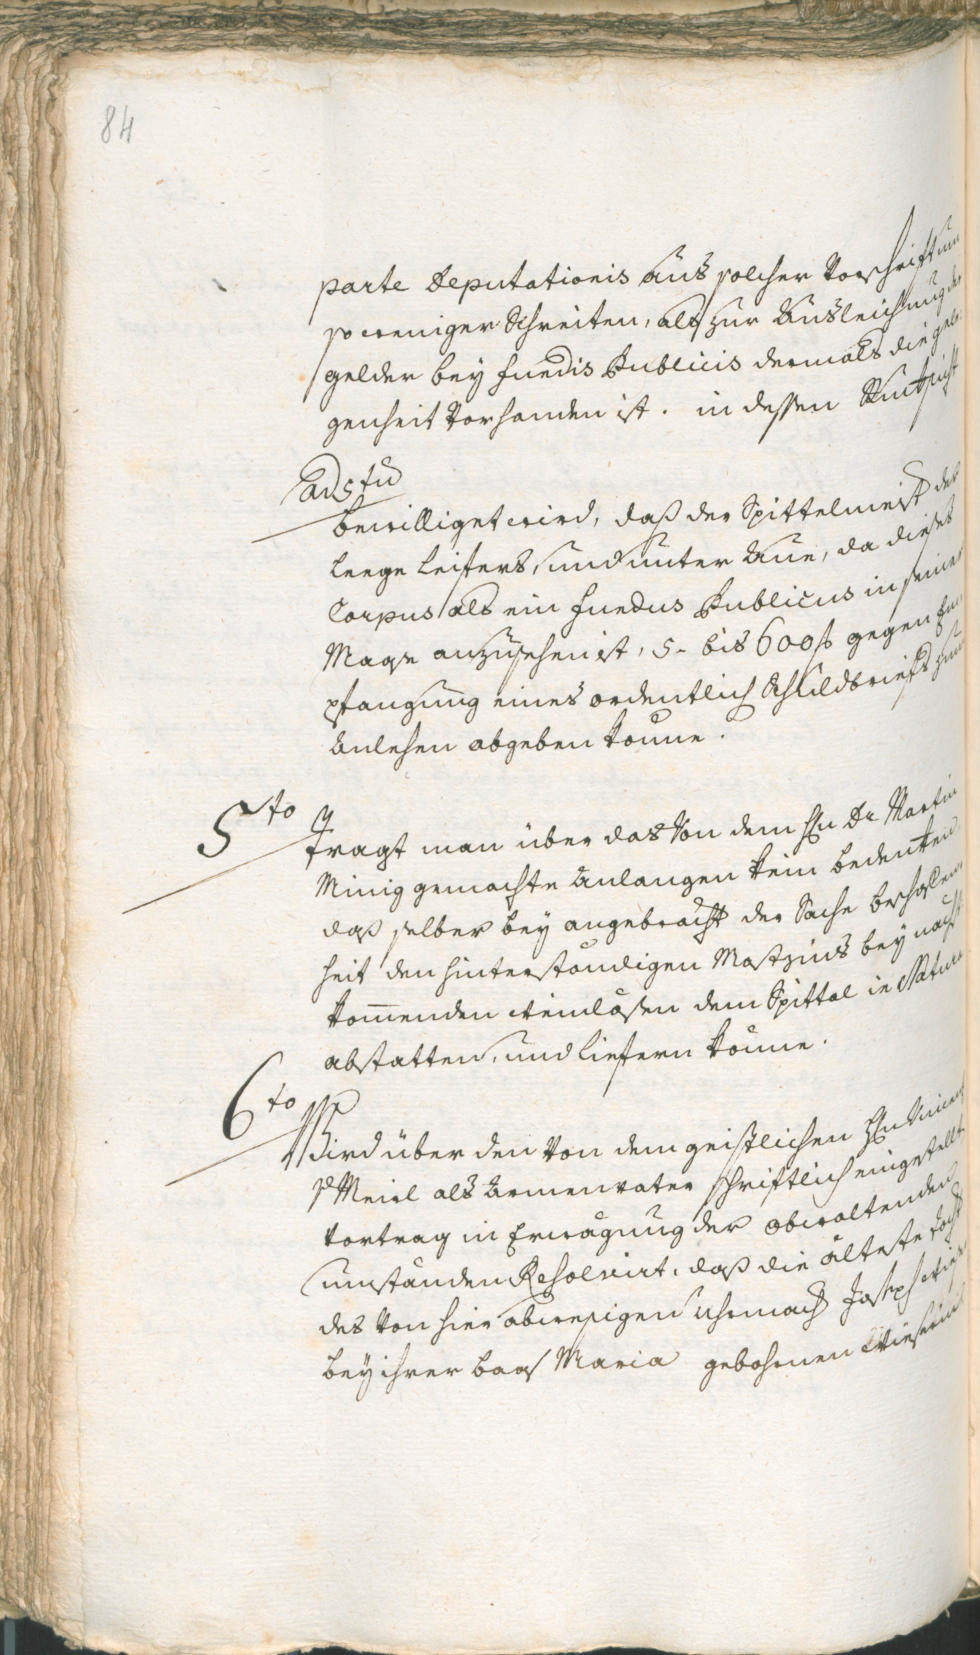 84
parte Deputationis aus solcher Vorschrift um
so weniger Schreiten, als zur Ausleichnung der
gelder bey Fundis Publicis dermals die gele
genheit Vorhanden ist. in dessen
ad 5tu
bewilliget wird, daß der Spittelmeist der
Leege Leifers, und unter Aue, da dieses
Corpus als ein Fundus Publicus in seiner
Maaße anzusehen ist, 5- bis 600 f gegen Em
pfangung eines ordentlich Schuldbriefs zum
Anlehen abgeben könne.
5to
Tragt man über das Von dem Hn Dr Martin
Minig gemachte Anlangen kein bedenken
daß selber bey angebracht der Sache beschafen
heit den hinterständigen Mostzins bey nächst
kommenden Weinlösen dem Spittal in Natura
abstatten, und liefern könne.
6to
Wird über den Von dem geistlichen Hn Vincenz
v Meirl als Armenvater schriftlich eingestellt
Vortrag in Erwägung der obwaltenden
umständen Resolvirt, daß die älteste Tocht
des Von hier abwesigen Uhrmach Joseph Wies
bey ihrer baas Maria gebohrnen Wieserin